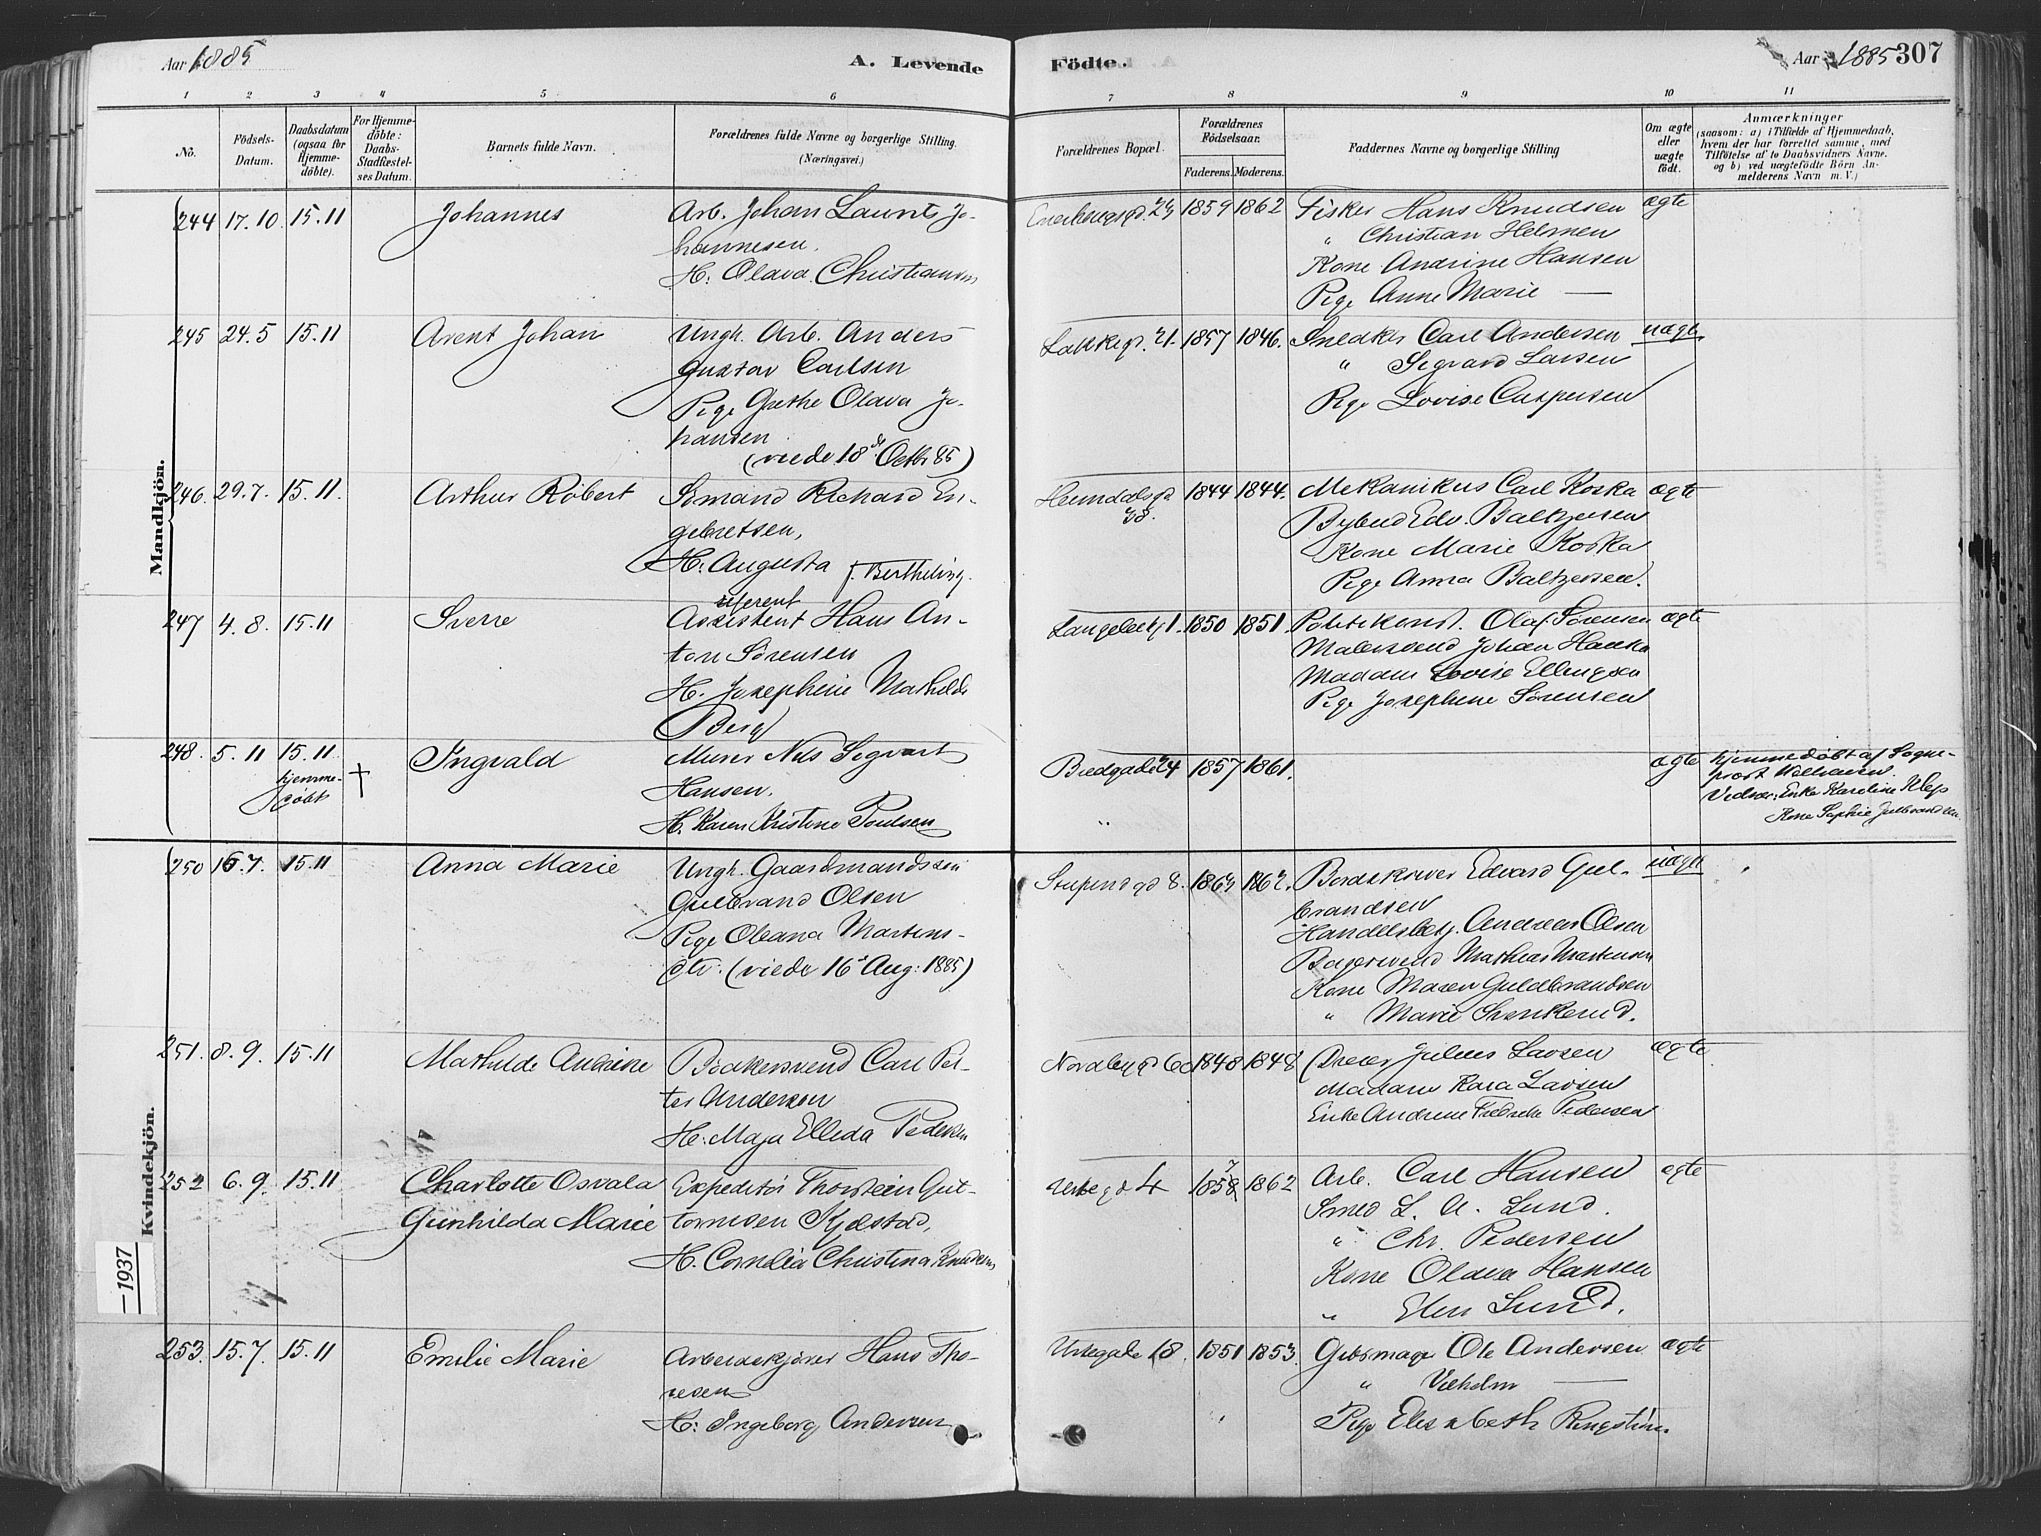 Aar 1885
A. Levende
Födte.
Aar 1885
307
1 2 3 4 5 6 7 8 9 10 11
No.
Födsels-
Datum.
Daabsdatum
(ogsaa for
Hjemme-
döbte).
For Hjemme-
döbte:
Daabs-
Stadfæstel-
ses Datum.
Barnets fulde Navn.
Forældrenes fulde Navne og borgerlige Stilling.
(Næringsvei.)
Forældrenes Bopæl.
Forældrenes
Födselsaar.
Faderens.
Moderens.
Faddernes Navne og borgerlige Stilling
Om ægte
eller
uægte
födt.
Anmærkninger
(saasom: a) i Tilfælde af Hjemmedaab,
hvem der har forrettet samme, med
Tilföielse af to Daabsvidners Navne.
og b) ved uægtefödte Börn An-
melderens Navn m. V.)
Mandkjön.
244 17.10 15.11
Johannes
Arb. Johan Jo-
hannesen.
H. Olava Christiansen
1859 1862
Fisker Hans Knudsen
" Christian Helmen
Kone Andrine Hansen
Pige Anne Marie —
ægte
245 24.5 15.11
Arent Johan
Ungk. Arb. Anders
Gustav Carlsen
Pige Grethe Olava Jo-
hansen
(viede 18de Octbr 85)
Lakkegd. 21. 1857 1846.
Snedker Carl Andersen
" Sigvard Larsen
Pige Lovise Caspersen
uægte
246. 29.7. 15.11.
Arthur Robert
Sömand Richard En-
gebretsen,
H. Augusta f. Berthling.
Heimdalsgd.
38.
1844 1844.
Mekanikus Carl Koska
Bybud Edv. Baltzersen
Kone Marie Koska
Pige Anna Baltzersen.
ægte
247 4.8. 15.11
Sverre
referent
Assistent Hans An-
ton Sörensen
H. Josephine Mathilde
Berg
1850 1851.
Politikonst. Olaf Sörensen
Malersvend Johan
Madam Lovise Ellingsen
Pige Josephine Sörensen
ægte
248. 5.11 15.11
hjemme-
döbt
†
Ingvald
Murer Nils Sigvart
Hansen.
H. Karen Kristine Poulsen
Bredgade 24 1857 1861.
"
ægte
hjemmedöbt af Sogne-
præst
Vidner: Enke Karoline Klep
Kone Sophie Gulbrandsen
Kvindekjön.
250 16.7. 15.11
Anna Marie
Ungk. Gaardmandssön
Gulbrand Olsen
Pige Oleana Martins-
dtr. (viede 16de Aug: 1885)
8. 1863 1862.
Edvard Gul-
brandsen
Handelsbetj. Andreas Olsen
Bagersvend Mathias Martinsen
Kone Maren Guldbrandsen
" Marie
uægte
251. 8.9. 15.11
Mathilde Andrine
Carl Pet-
ter Andersen
H. Maja Elleda Pedersen
1848 1848
Dreier Julius Larsen
Madam Kaia Larsen
Enke Andrine Fredrikke Pedersen
ægte
252 6.9. 15.11
Charlotte Osvala
Gunhilda Marie
Expeditör Thorstein Gut-
tormsen Kjelstad,
H. Cornelia Christina Knudsen
Urtegd 4 1858 7 1862
Arb. Carl Hansen
Smed L. A. Lund.
" Chr. Pedersen
Kone Olava Hansen
" Elen Lund.
ægte
253. 15.7. 15.11
Emilie Marie
Arbeidskjörer Hans Tho-
resen
H. Ingeborg Andersen
Urtegade 18. 1851 1853.
Gibsmager Ole Andersen
" Vilhelm —
Pige Elisabeth Ringström
ægte
— 1937